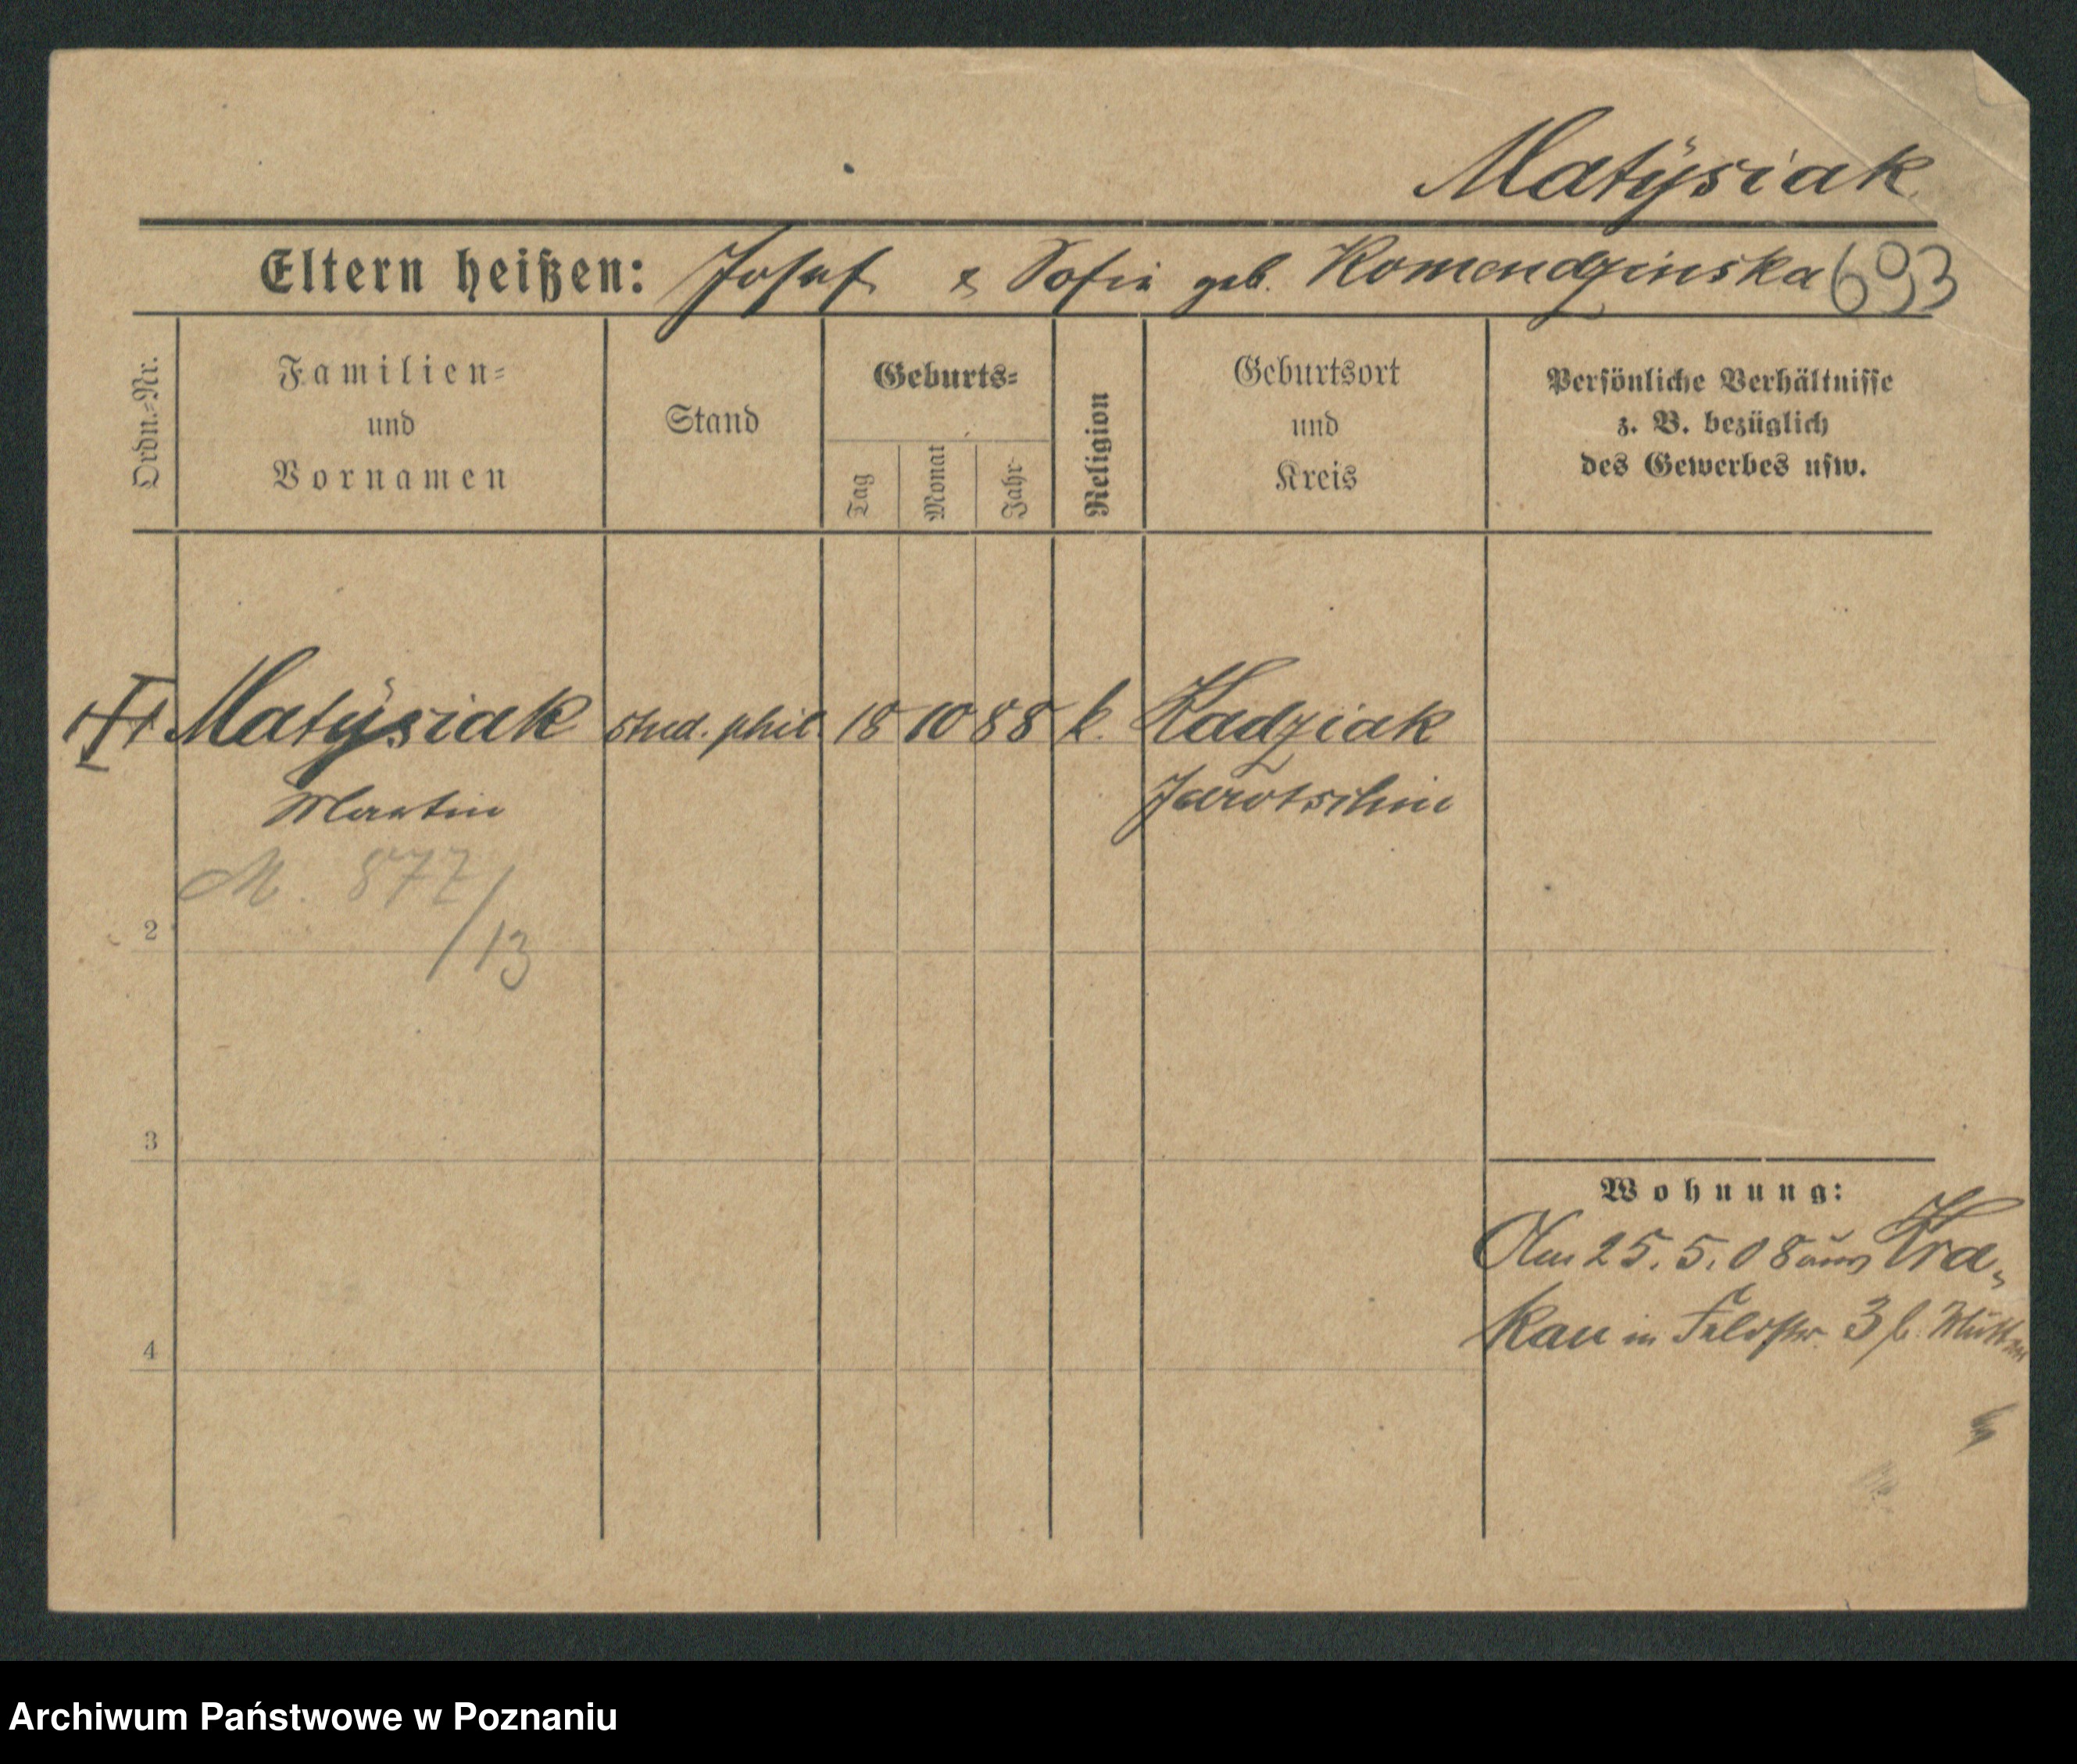 Matÿsiak
Eltern heißen: Josef & Sofia geb. Komendzinska 693
Ordn.=Nr.
Familien=
und
Vornamen
Stand
Geburts=
Tag
Monat
Jahr
Religion
Geburtsort
und
Kreis
Persönliche Verhältnisse
z. B. bezüglich
des Gewerbes usw.
Matÿsiak stud. phil. 18 10 88 k. Kadziak
Martin Jarotschin
M. 877/13
2
3
Wohnung:
Am 25.5.08 aus Kra-
kau in Feldstr. 3 b.
4
Archiwum Państwowe w Poznaniu